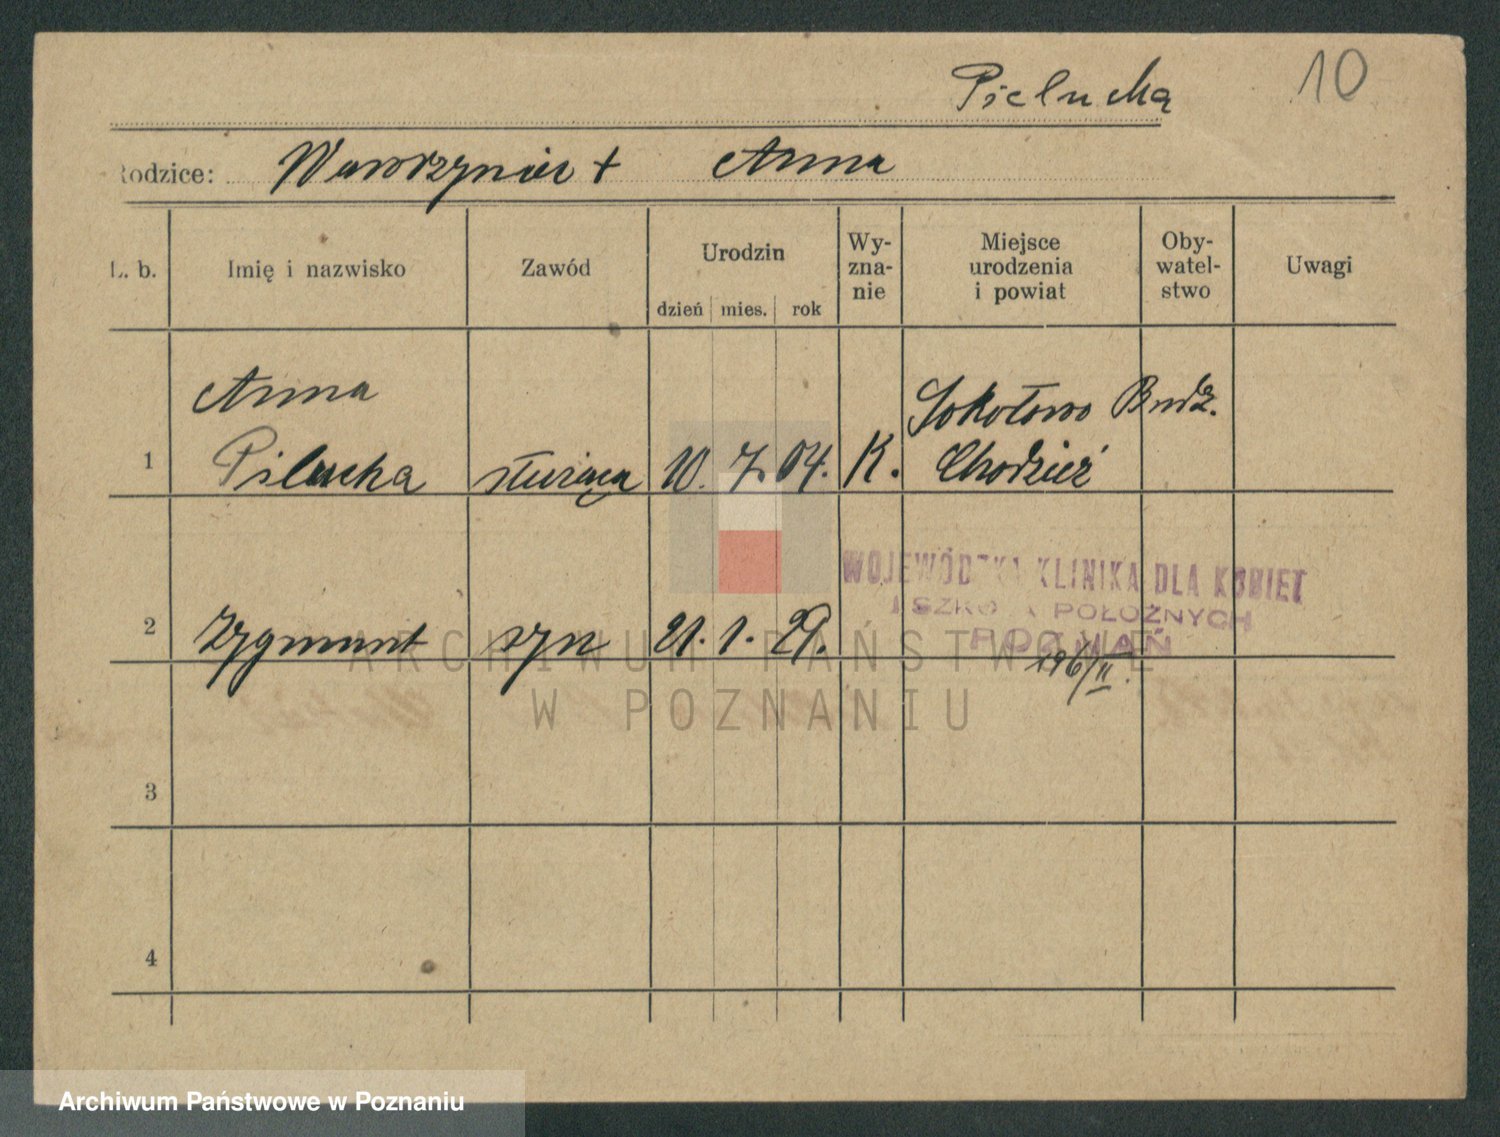 10
Pielucha
Rodzice: Wawrzyniec + Anna
L. b. Imię i nazwisko Zawód Urodzin dzień mies. rok Wyznanie Miejsce urodzenia i powiat Obywatelstwo Uwagi
Anna Sokołowo Budz.
1 Pilucha służąca 10. 7. 04. K. Chodzież
WOJEWÓDZKA KLINIKA DLA KOBIET
I SZKOŁA POŁOŻNYCH
2 Zygmunt syn 21. 1. 29. POZNAŃ
196/II.
ARCHIWUM PAŃSTWOWE
W POZNANIU
3
4
Archiwum Państwowe w Poznaniu